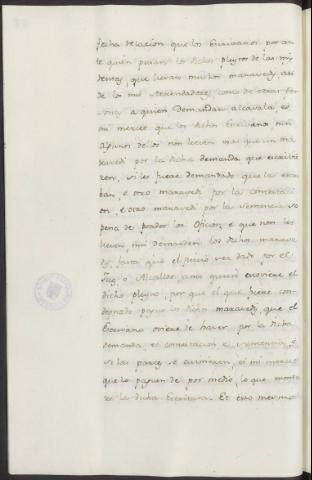 fecha relacion que los Escrivanos por an
te quien pasan los dichos pleytos de las mis
Rentas, que llevan muchos maravedis, asi
de los mis Arrendadores, como de otras per
sonas a quien demandan alcavala, es
mi merced que los dichos Escrivanos, nin
algunos de ellos non lleven mas que un ma
ravedi por la dicha demanda que escrivie
ren, si les fuere demandado que la escri
ban, é otro maravedi por la contestacion
é otro maravedi por la sentencia so
pena de perder los Oficios, é que non les
lleven, nin demanden los dichos marave
dis, fasta que el pleito sea dado por el
Juez, o Alcallde, ante quien estoviere el
dicho pleyto, por que el que fuere con
denado pague los dichos maravedis, que el
Escrivano oviere de haver por la dicha
demanda, é contestacion é sentencia, é
si las partes se avinieren, es mi merced
que lo paguen de por medio, lo que monta
re la dicha Escritura. Et esso mesmo